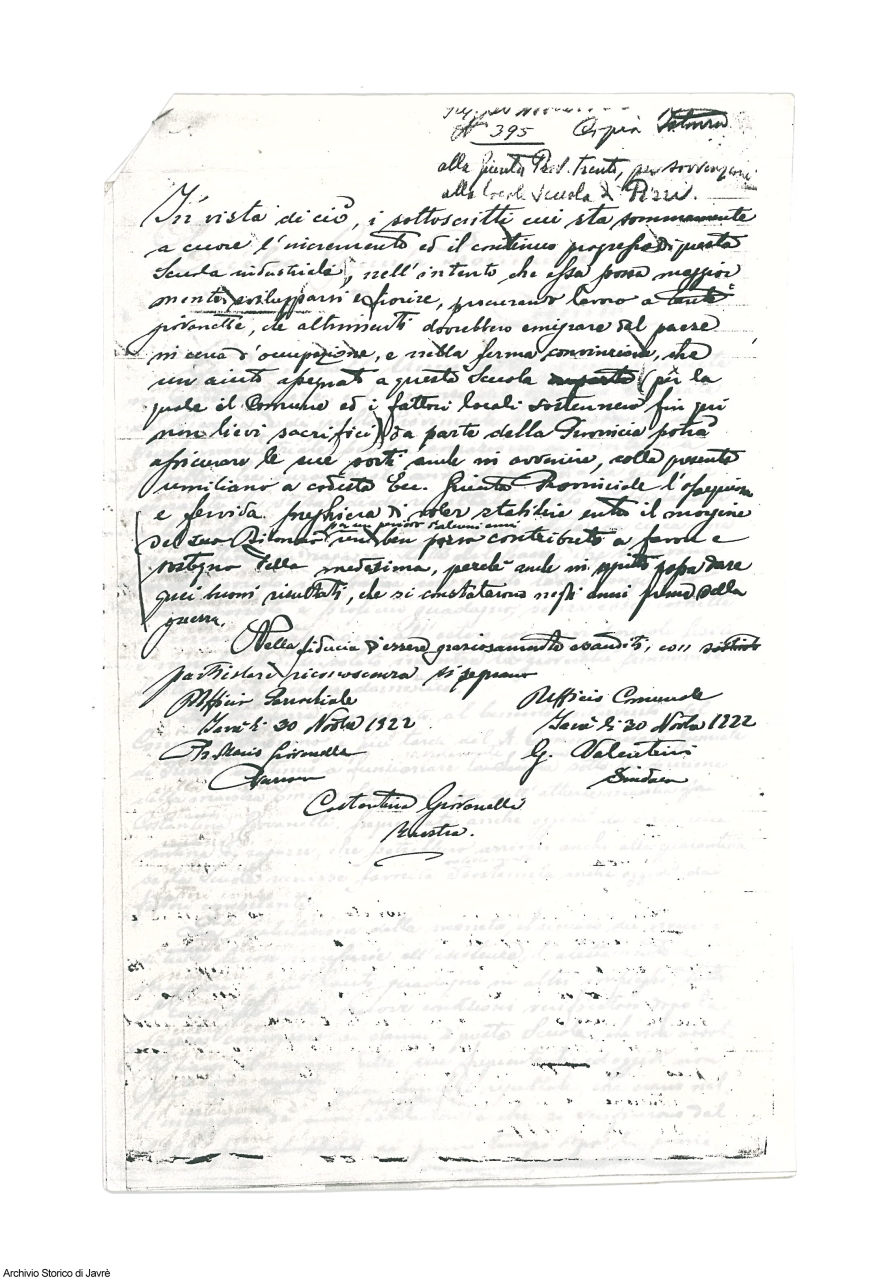 N° 395 Copia
alla Giunta Prov. Trento, per sovvenzione
alla locale Scuola di Pizzi.
In vista di ciò, i sottoscritti cui sta sommamente
a cuore l'incremento ed il continuo progresso di questa
Scuola industriale, nell'intento che essa possa maggior
mente svilupparsi e fiorire, procurando lavoro a tante
giovanette, che altrimenti dovrebbero emigrare dal paese
in cerca d'occupazione, e nella ferma convinzione, che
un aiuto assegnato a questa Scuola (per la
quale il Comune ed i fattori locali sostennero fin qui
non lievi sacrifici) da parte della Provincia potrà
assicurare le sue sorti anche in avvenire, colla presente
umiliano a codesta Ecc. Giunta Provinciale l'ossequiosa
e fervida preghiera di voler stabilire entro il margine
del suo Bilancio per un periodo di alcuni anni un ben contributo a favore e
sostegno della medesima, perchè anche in possa dare
quei buoni risultati, che si constatarono negli anni prima della
guerra.
Nella fiducia d'essere graziosamente esauditi, con
particolare riconoscenza si segnano
Ufficio Parrochiale Ufficio Comunale
Javrè li 30 Novbre 1922 Javrè li 30 Novbre 1922
Giovanella G. Valentini
Parroco Sindaco
Costantina Giovanelli
Maestra.
Archivio Storico di Javrè